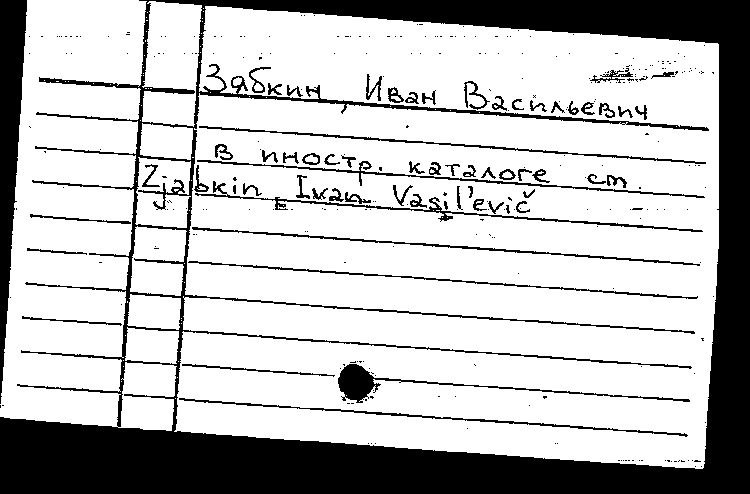 Зябкин, Иван Васильевич
в иностр. каталоге ст.
Zjabkin, Ivan Vasil'evič